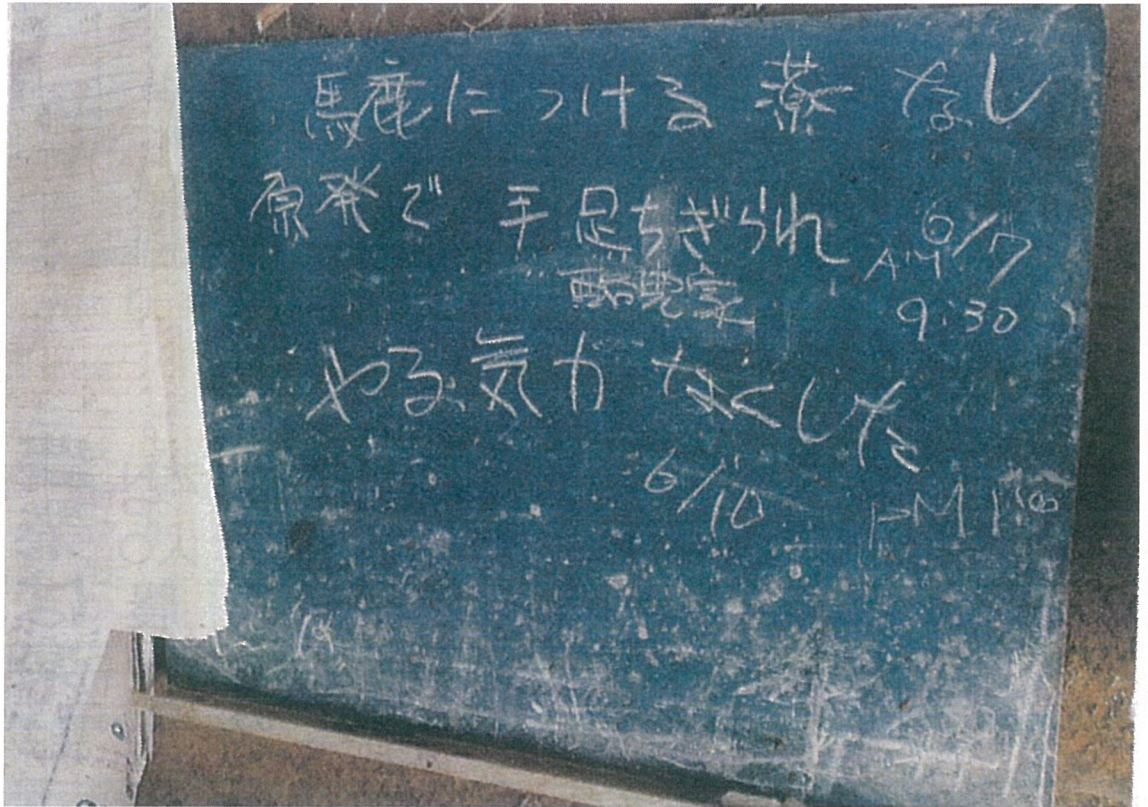 馬鹿につける薬なし
原発で手足ちぎられ 6/7
AM 9:30
酪農家
やる気力なくした
6/10 PM 1:00